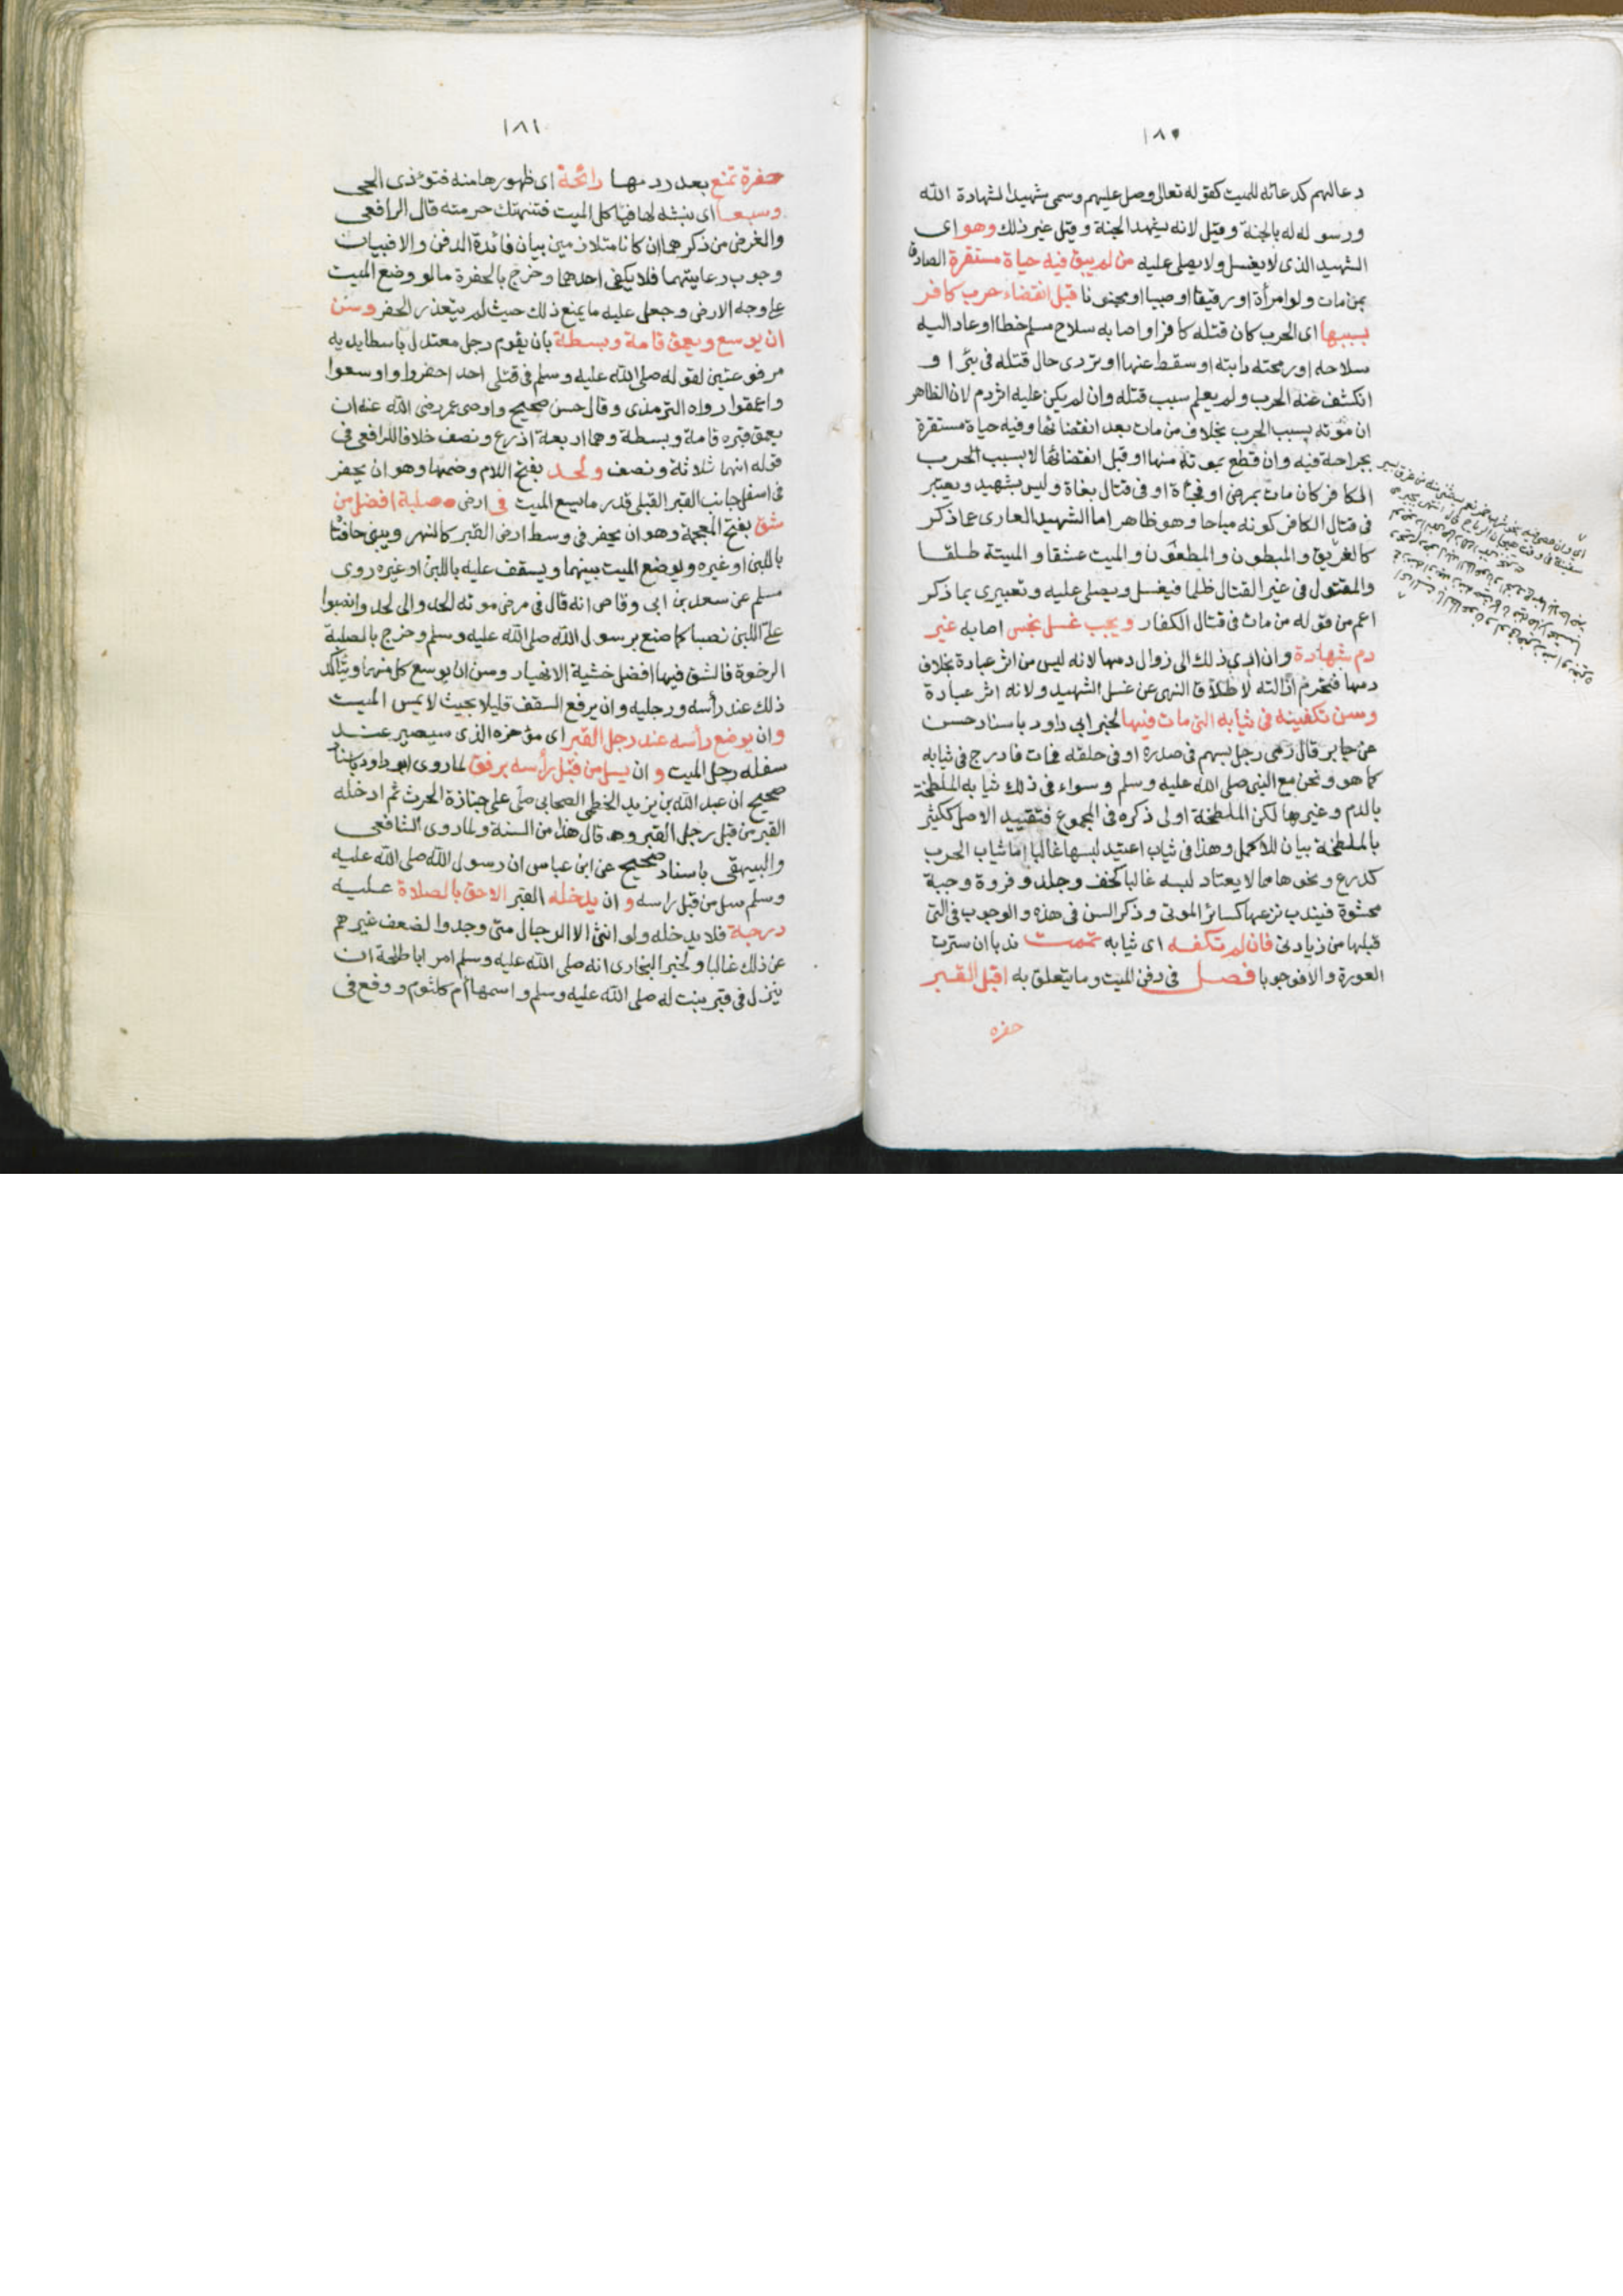 ١٨٠
دعا لهم كدعائه للميت كقوله تعالى وصل عليهم وسمى شهيدا لشهادة الله
ورسوله له بالجنة وقيل لانه يشهد الجنة وقيل غير ذلك وهو اى
الشهيد الذى لا يغسل ولا يصلى عليه من لم يبق فيه حياة مستقرة الصادق
بمن مات ولو امرأة او رقيقا او صبيا او مجنونا قبل انقضاء حرب كافر
بسببها اى الحرب كان قتله كافر او اصابه سلاح مسلم خطا او عاد اليه
سلاحه او رمحته دابته او سقط عنها او تردى حال قتله فى بئر او
انكشف عنه الحرب ولم يعلم سبب قتله وان لم يكن عليه اثر دم لان الظاهر
ان موته بسبب الحرب بخلاف من مات بعد انقضائها وفيه حياة مستقرة
بجراحة فيه وان قطع بموته منها او قبل انقضائها لا بسبب الحرب
الكافر كان مات بمرض او فجأة او فى قتال بغاة وليس بشهيد ويعتبر
فى قتال الكافر كونه مباحا وهو ظاهر اما الشهيد العارى عما ذكر
كالغريق والمبطون والمطعون والميت عشقا والميتة طلقا
والمقتول فى غير القتال ظلما فيغسل ويصلى عليه وتعبيرى بما ذكر
اعم من قوله من مات فى قتال الكفار ويجب غسل نجس اصابه غير
دم شهادة وان ادى ذلك الى زوال دمها لانه ليس من اثر عبادة بخلاف
دمها فتحرم ازالته لاطلاق النهى عن غسل الشهيد ولانه اثر عبادة
وسن تكفينه فى ثيابه التى مات فيها لخبر ابى داود باسناد حسن
عن جابر قال رمى رجل بسهم فى صدره او فى حلقه فمات فادرج فى ثيابه
كما هو ونحن مع النبى صلى الله عليه وسلم وسواء فى ذلك ثيابه الملطخة
بالدم وغيرها لكن الملطخة اولى ذكره فى المجموع فتقييد الاصل ككثير
بالملطخة بيان للاكمل وهذا فى ثياب اعتيد لبسها غالبا اما ثياب الحرب
كدرع ونحوها مما لا يعتاد لبسه غالبا كخف وجلد وفروة وجبة
محشوة فيندب نزعها كسائر الموتى وذكر السن فى هذه والوجوب فى التى
قبلها من زيادتى فان لم تكفه اى ثيابه تممت ندبا ان سترت
العورة والا فوجوبا فصل فى دفن الميت وما يتعلق به اقل القبر
حفرة
١٨١
حفرة تمنع بعد ردمها رائحة اى ظهورها منه فتؤذى الحى
وسبعا اى نبشه لها فياكل الميت فتنتهك حرمته قال الرافعى
والغرض من ذكرهما ان كانا متلازمين بيان فائدة الدفن والا فبيان
وجوب رعايتهما فلا يكفى احدهما وخرج بالحفرة ما لو وضع الميت
على وجه الارض وجعل عليه ما يمنع ذلك حيث لم يتعذر الحفر وسن
ان يوسع ويعمق قامة وبسطة بان يقوم رجل معتدل باسطا يديه
مرفوعتين لقوله صلى الله عليه وسلم فى قتلى احد احفروا واوسعوا
واعمقوا رواه الترمذى وقال حسن صحيح واوصى عمر رضى الله عنه ان
يعمق قبره قامة وبسطة وهما اربعة اذرع ونصف خلافا للرافعى فى
قوله انهما ثلاثة ونصف ولحد بفتح اللام وضمها وهو ان يحفر
فى اسفل جانب القبر القبلى قدر ما يسع الميت فى ارض صلبة افضل من
شق بفتح المعجمة وهو ان يحفر فى وسط ارض القبر كالنهر ويبنى حافتا
باللبن او غيره ويوضع الميت بينهما ويسقف عليه باللبن او غيره روى
مسلم عن سعد بن ابى وقاص انه قال فى مرض موته الحدوا لى لحدا وانصبوا
على اللبن نصبا كما صنع برسول الله صلى الله عليه وسلم وخرج بالصلبة
الرخوة فالشق فيها افضل خشية الانهيار وسن ان يوسع كل منهما ويتاكد
ذلك عند رأسه ورجليه وان يرفع السقف قليلا بحيث لا يمس الميت
وان يوضع رأسه عند رجل القبر اى مؤخره الذى سيصير عند
سفله رجل الميت و ان يسل من قبل رأسه برفق لما روى ابو داود باسناد
صحيح ان عبد الله بن يزيد الخطمى الصحابى صلى على جنازة الحرث ثم ادخله
القبر من قبل رجل القبر وقال هذا من السنة ولما روى الشافعى
والبيهقى باسناد صحيح عن ابن عباس ان رسول الله صلى الله عليه
وسلم سل من قبل راسه و ان يدخله القبر الاحق بالصلاة عليه
درجة فلا يدخله ولو انثى الا الرجال متى وجدوا لضعف غيرهم
عن ذلك غالبا ولخبر البخارى انه صلى الله عليه وسلم امر ابا طلحة ان
ينزل فى قبر بنت له صلى الله عليه وسلم واسمها أم كلثوم ووقع فى